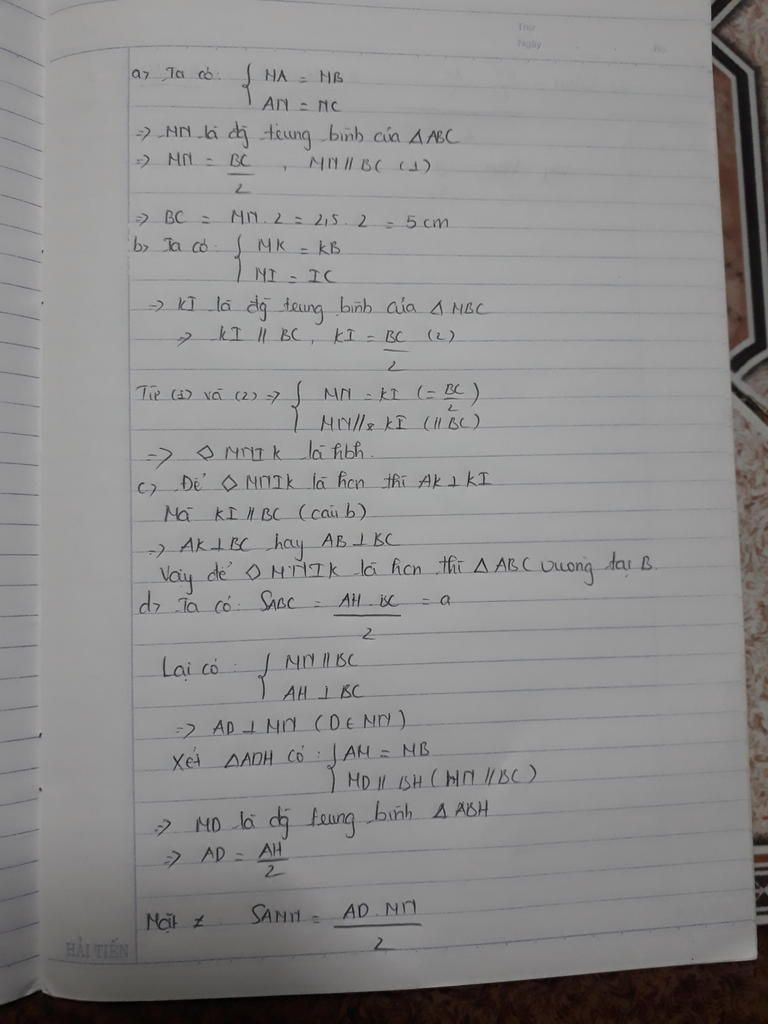 Thứ
Ngày No
a, Ta có: { MA = MB
AN = NC
=> MN là đg̃ trung bình của △ ABC
=> MN = BC/2 , MN // BC (1)
=> BC = MN . 2 = 2,5 . 2 = 5 cm
b, Ta có: { MK = KB
NI = IC
=> KI là đg̃ trung bình của △ NBC
=> KI // BC, KI = BC/2 (2)
Từ (1) và (2) => { MN = KI (= BC/2)
MN // KI (// BC)
=> ◇ MNIK là hbh.
c, Để ◇ MNIK là hcn thì AK ⊥ KI
Mà KI // BC (câu b)
=> AK ⊥ BC hay AB ⊥ BC
Vậy để ◇ MNIK là hcn thì △ ABC vuông tại B.
d, Ta có: SABC = AH . BC/2 = a
Lại có: { MN // BC
AH ⊥ BC
=> AD ⊥ MN (D ∈ MN)
Xét △ADH có: { AM = MB
MD // BH (MN // BC)
=> MD là đg̃ trung bình △ ABH
=> AD = AH/2
Mặt ≠ SAMN = AD . MN/2
HẢI TIẾN